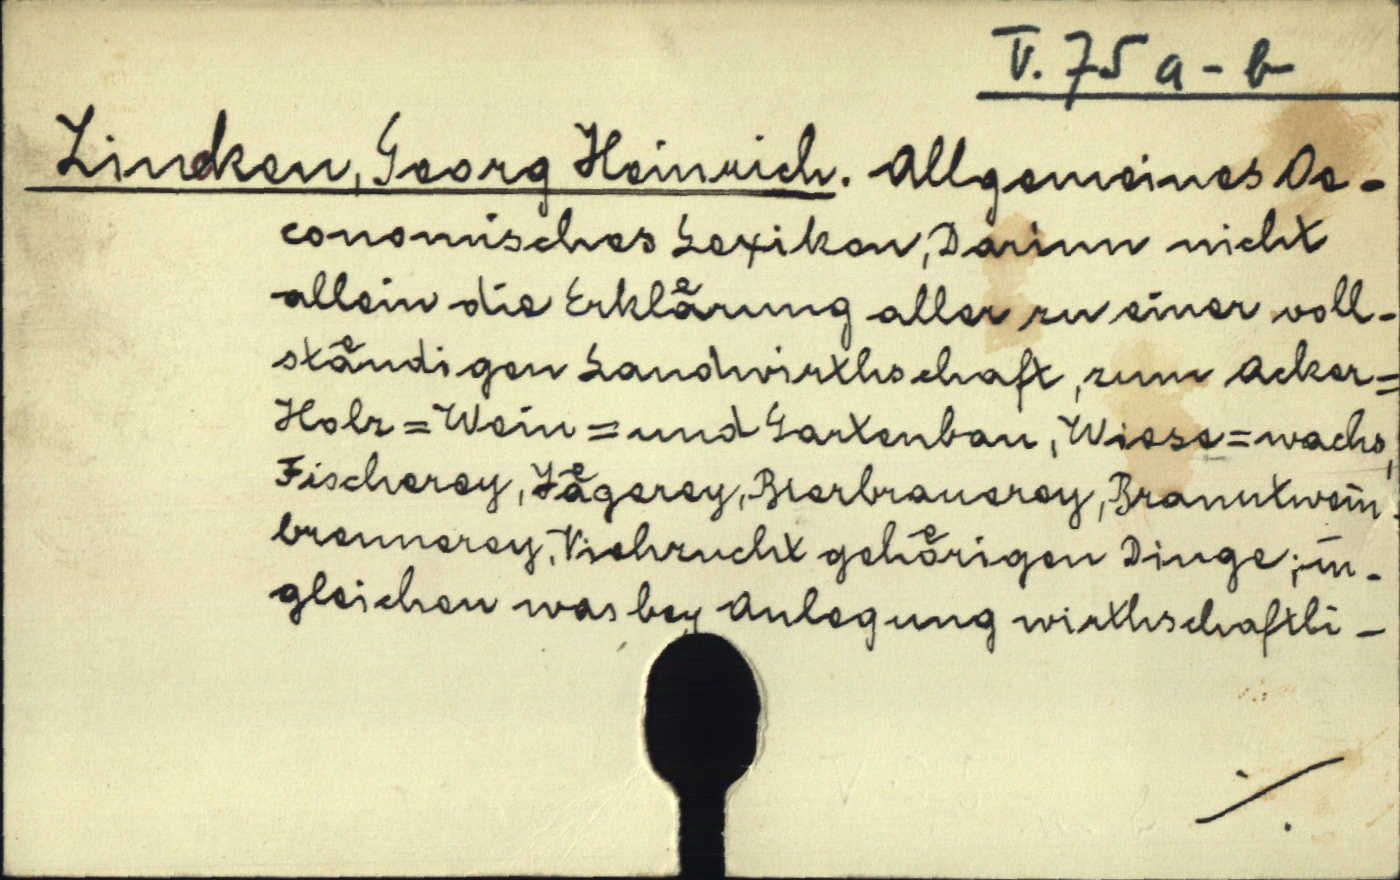 V. 75 a - b
Lincken, Georg Heinrich. Allgemeines Oe-
conomisches Lexikon, Darinn nicht
allein die Erklaͤrung aller zu einer voll-
staͤndigen Landwirthschaft, zum Acker=
Holz=Wein=und Gartenbau, Wiese=wachs,
Fischerey, Jaͤgerey, Bierbrauerey, Branntwein-
brennerey, Viehzucht gehoͤrigen Dinge; in-
gleichen was bey Anlegung wirthschaftli-
./.